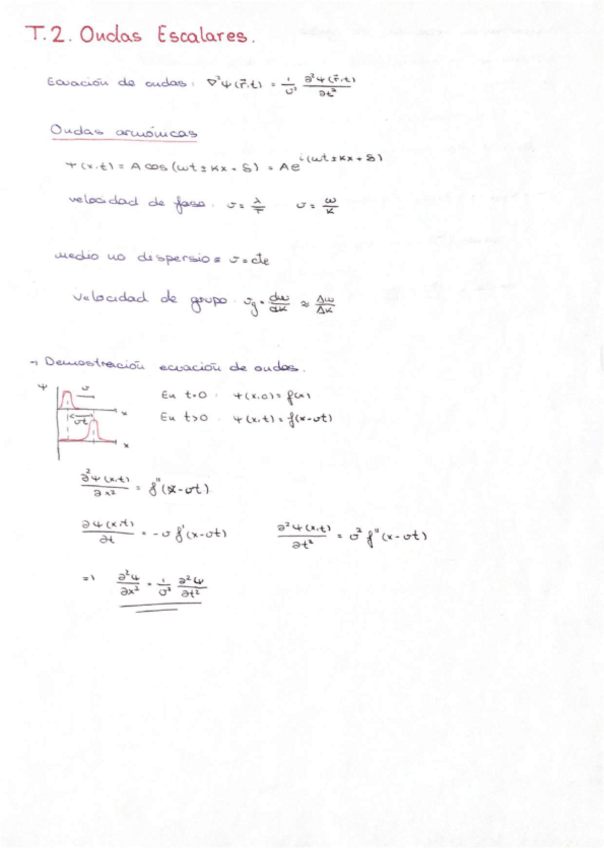 T.2. Ondas Escalares.
Ecuación de ondas: ∇²ψ(r⃗,t) = 1/v² ∂²ψ(r⃗,t)/∂t²
Ondas armónicas
ψ(x,t) = A cos(ωt ± kx + δ) = A e^i(ωt ± kx + δ)
velocidad de fase: v = λ/T v = ω/k
medio no dispersio = v = cte
velocidad de grupo: v_g = dω/dk ≈ Δω/Δk
→ Demostración ecuación de ondas.
ψ v
En t=0: ψ(x,0) = f(x)
x
vt
En t>0: ψ(x,t) = f(x-vt)
x
∂²ψ(x,t)/∂x² = f''(x-vt)
∂ψ(x,t)/∂t = -v f'(x-vt) ∂²ψ(x,t)/∂t² = v² f''(x-vt)
=> ∂²ψ/∂x² = 1/v² ∂²ψ/∂t²